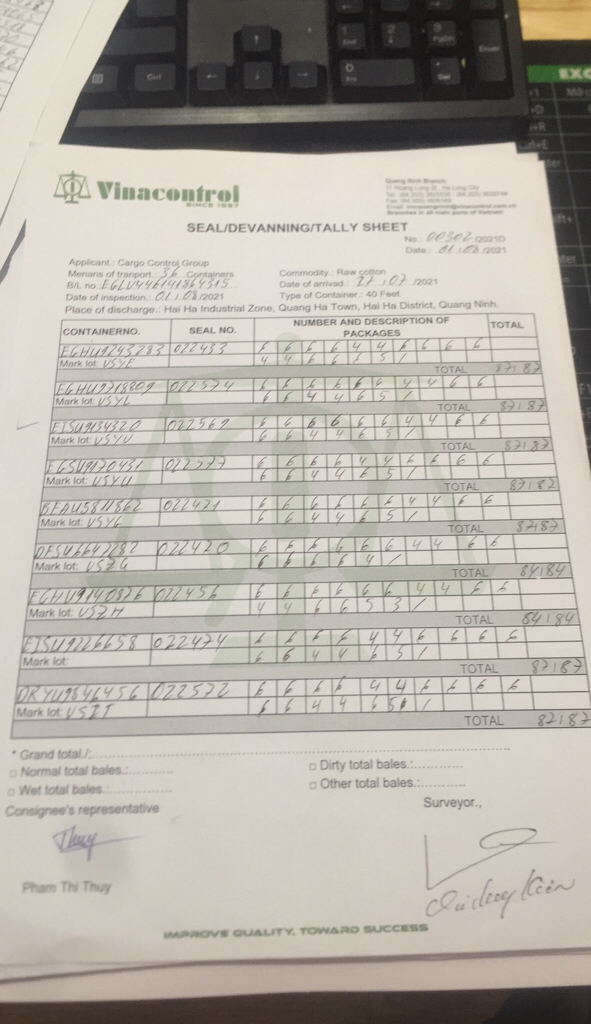 Vinacontrol
SINCE 1957
Quang Ninh Branch
11 Hoang Long St, Ha Long City
Branches in all main ports of Vietnam
SEAL/DEVANNING/TALLY SHEET
No.: 00302/2021D
Date: 01/08/2021
Applicant.: Cargo Control Group
Merians of tranport.: 36 Containers
Commodity.: Raw cotton
B/L no.: EGLV446141864315
Date of arrival.: 27/07/2021
Date of inspection.: 01/08/2021
Type of Container.: 40 Feet
Place of discharge.: Hai Ha Industrial Zone, Quang Ha Town, Hai Ha District, Quang Ninh.
CONTAINERNO. SEAL NO. NUMBER AND DESCRIPTION OF PACKAGES TOTAL
EGHU9243283 022433 6 6 6 6 4 4 6 6 6 6
Mark lot: VSYE 4 4 6 6 6 5 /
TOTAL 87/87
EGHU9318809 022574 6 6 6 6 6 6 4 4 6 6
Mark lot: VSYL 6 6 4 4 6 5 /
TOTAL 87/87
EISU9134320 022569 6 6 6 6 6 6 4 4 6 6
Mark lot: VSYV 6 6 4 4 6 5 /
TOTAL 87/87
EGSU9120431 022577 6 6 6 6 4 4 6 6 6 6
Mark lot: VSYU 6 6 4 4 6 5 /
TOTAL 87/87
BEAU5811862 022421 6 6 6 6 6 6 4 4 6 6
Mark lot: VSYG 6 6 4 4 6 5 /
TOTAL 87/87
DFSU6642282 022420 6 6 6 6 6 6 4 4 6 6
Mark lot: VSZG 6 6 6 6 6 4 /
TOTAL 84/84
EGHU9140876 022456 6 6 6 6 6 6 4 4 6 6
Mark lot: VSZH 4 4 6 6 5 3 /
TOTAL 84/84
EISU9226658 022474 6 6 6 6 4 4 6 6 6 6
Mark lot: 6 6 4 4 6 5 /
TOTAL 87/87
DRYU9846456 022572 6 6 6 6 4 4 6 6 6 6
Mark lot: VSZT 6 6 4 4 6 5 /
TOTAL 87/87
* Grand total./:
□ Normal total bales.:
□ Dirty total bales.:
□ Wet total bales.:
□ Other total bales.:
Consignee's representative
Surveyor.,
Thuy
Pham Thi Thuy
IMPROVE QUALITY, TOWARD SUCCESS
Ctrl
Enter